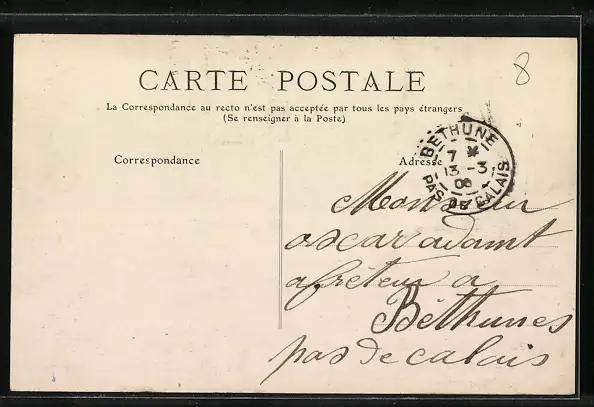 8
CARTE POSTALE
La Correspondance au recto n'est pas acceptée par tous les pays étrangers
(Se renseigner à la Poste)
Correspondance
Adresse
BETHUNE
7 *
13 -3
08
PAS DE CALAIS
Monsieur
oscar adamt
afréteur a
Béthunes
pas de calais